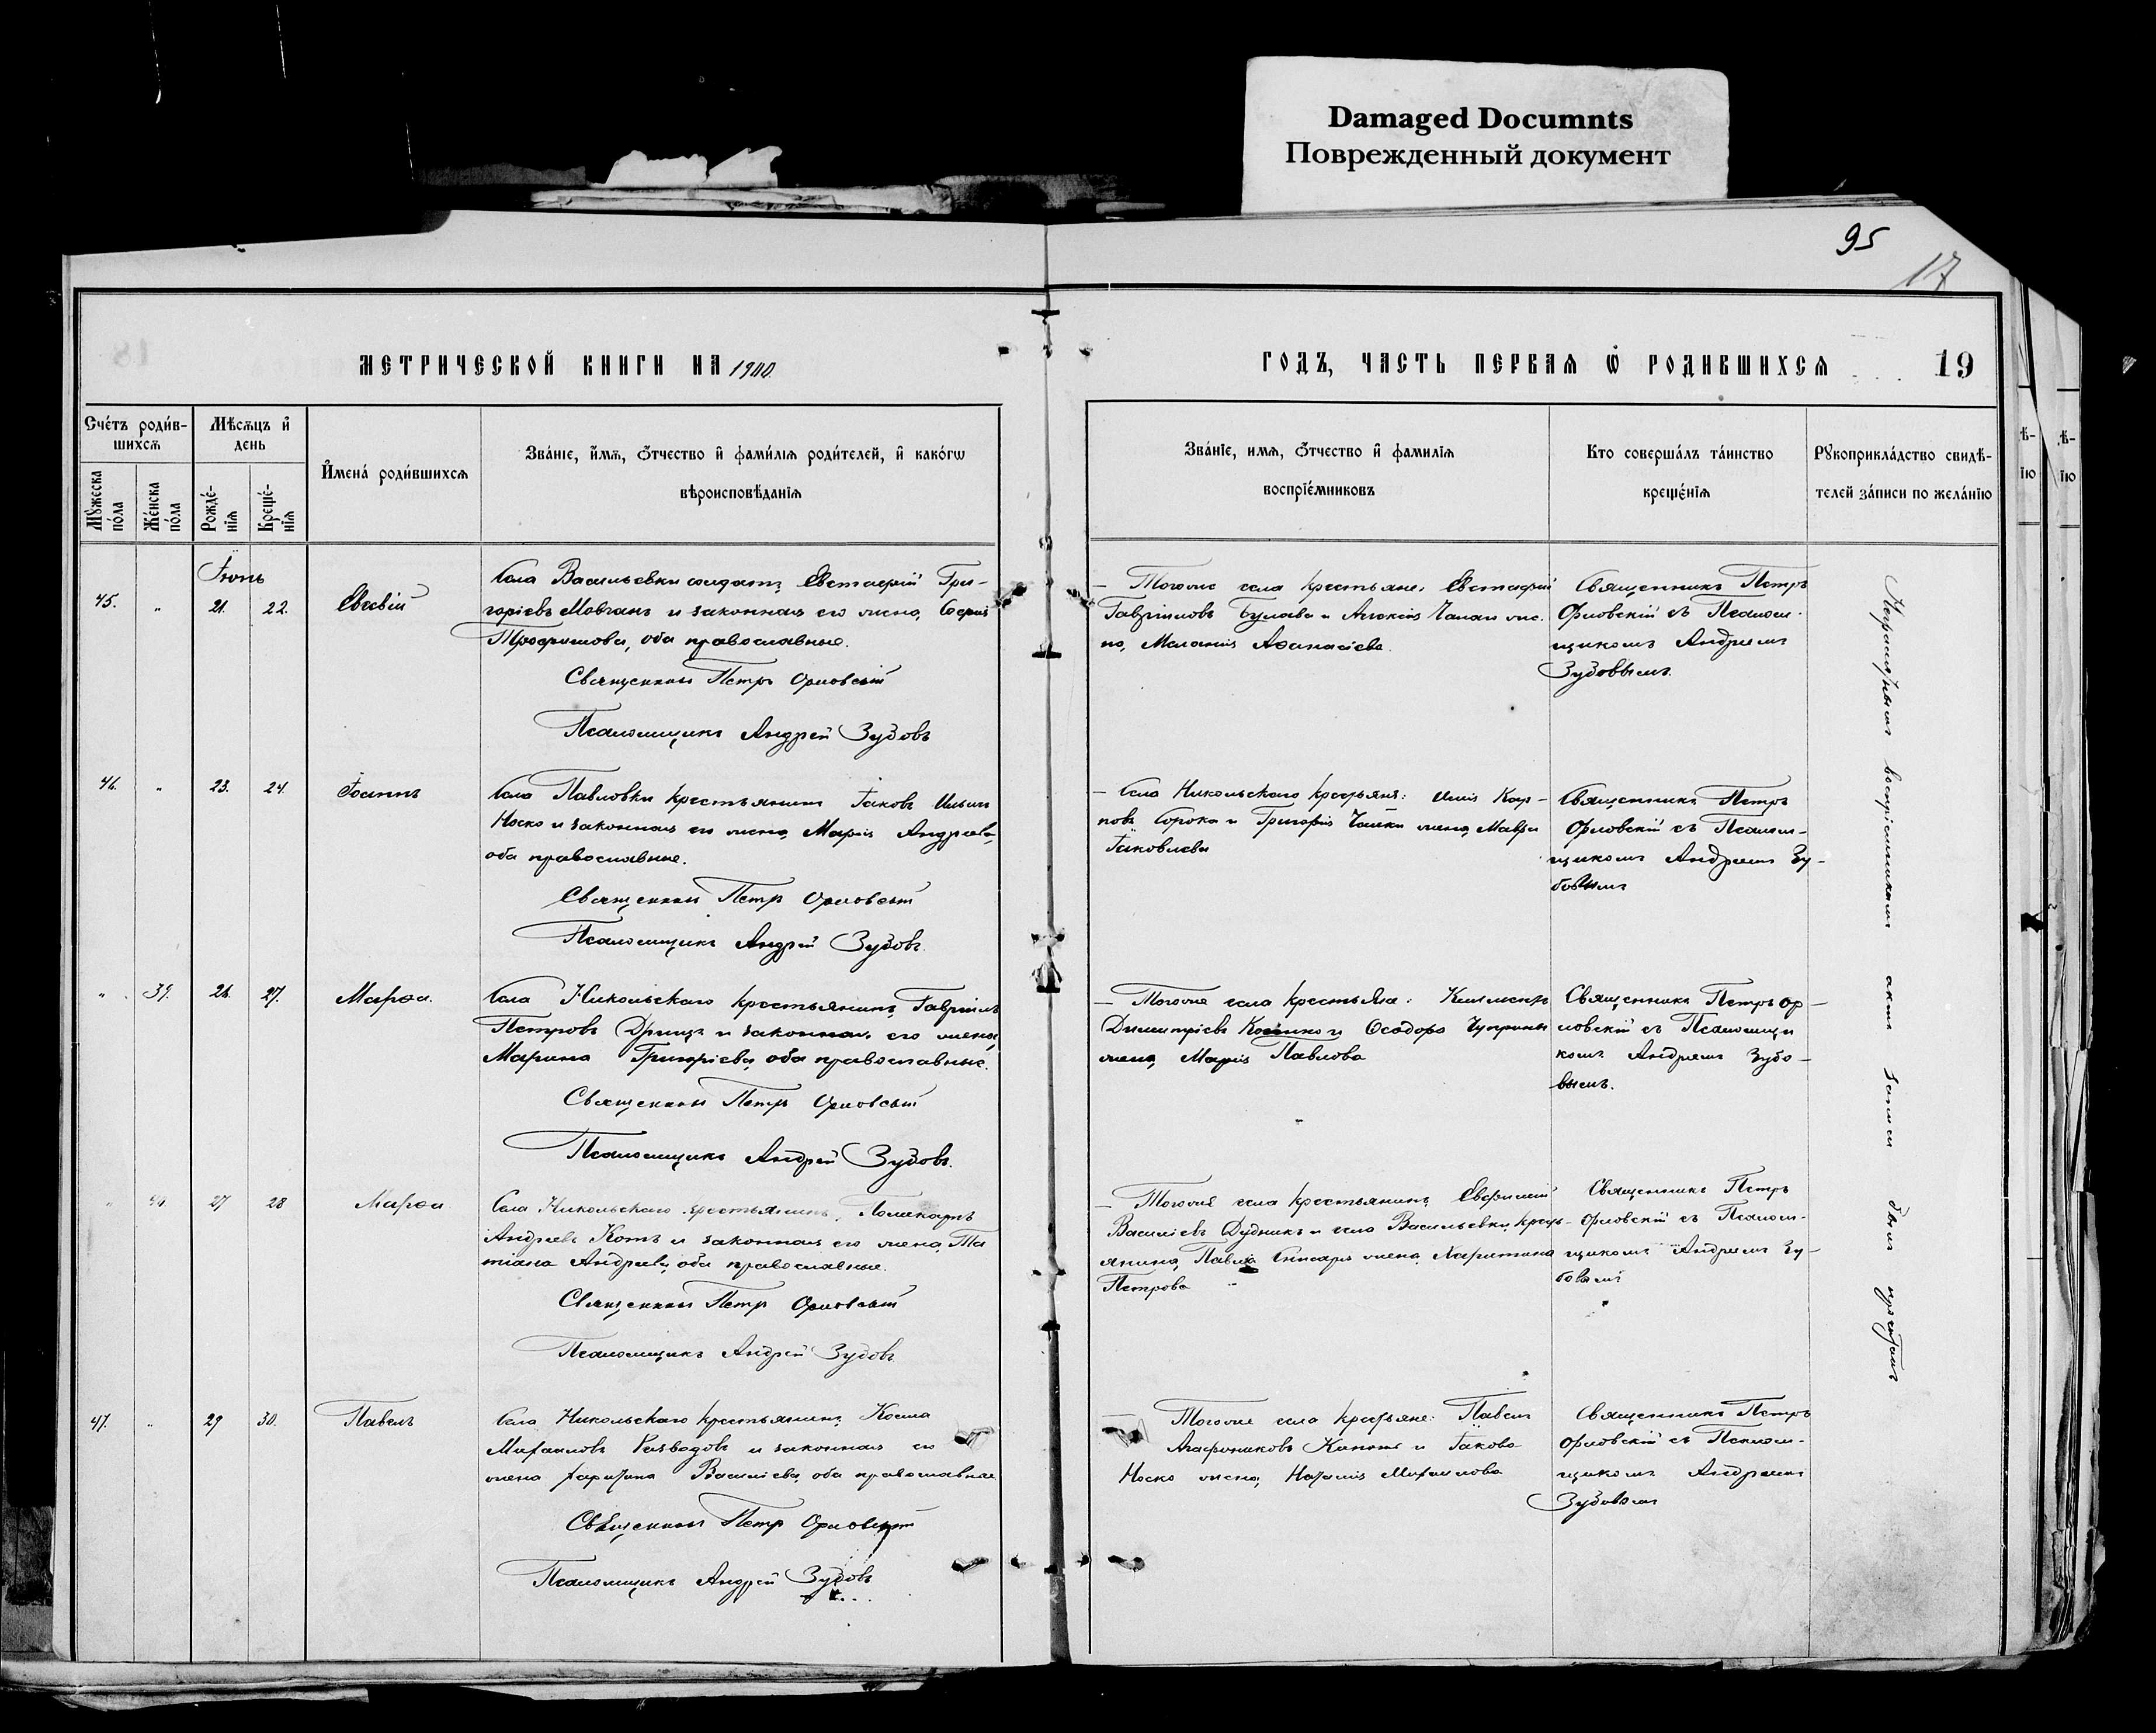 Damaged Documnts
Поврежденный документ
95
17
МЕТРИЧЕСКОЙ КНИГИ НА 1900
ГОДЪ, ЧАСТЬ ПЕРВАЯ Ѡ РОДИВШИХСЯ
19
Счетъ родив-
шихся
Мѣсяцъ и
день
Мужеска
пола
Женска
пола
Рожде-
нія
Креще-
нія
Имена родившихся
Званіе, имя, отчество и фамилія родителей, и какогѡ
вѣроисповѣданія
Званіе, имя, отчество и фамилія
воспріемниковъ
Кто совершалъ таинство
крещенія
Рукоприкладство свидѣ-
телей записи по желанію
45. " 21. 22. Евсевій
Села Васильевки солдатъ Евстафій Гри-
горіевъ Мовчанъ и законная его жена, Софія
Трофимова, оба православные.
Священникъ Петръ Орловскій
Псаломщикъ Андрей Зубовъ
Тогоже села крестьяне: Евстафій
Гавріиловъ Булава и Алексія жe-
на, Меланія Аѳанасіева.
Священникъ Петръ
Орловскій съ Псалом-
щикомъ Андреемъ
Зубовымъ.
46. " 23. 24. Іоаннъ
Села Павловки крестьянинъ Іаковъ Ильинъ
Носко и законная его жена, Марія Андреева,
оба православные.
Священникъ Петръ Орловскій
Псаломщикъ Андрей Зубовъ.
Села Никольскаго крестьяне: Илія Кар-
повъ Сорока и Григорія Чайки жена, Мавра
Іаковлева
Священникъ Петръ
Орловскій съ Псалом-
щикомъ Андреемъ Зу-
бовымъ
" 39. 26. 27. Марѳа.
Села Никольскаго крестьянинъ, Гавріилъ
Петровъ Дрищъ и законная его жена,
Марина Григоріева, оба православные.
Священникъ Петръ Орловскій
Псаломщикъ Андрей Зубовъ.
Тогоже села крестьяне: Климентъ
Димитріевъ и Ѳеодора Чуприны
жена, Марія Павлова
Священникъ Петръ Ор-
ловскій съ Псаломщи
комъ Андреемъ Зубо-
вымъ.
" 40. 27 28 Марѳа
Села Никольскаго крестьянинъ, Поликарпъ
Андреевъ Котъ и законная его жена, Та
тіана Андреева, оба православные.
Священникъ Петръ Орловскій
Псаломщикъ Андрей Зубовъ
Тогоже села крестьянинъ Евфимій
Василіевъ Дудникъ и села Васильевки, кресть-
янина, Павла жена, Харитина
Петрова
Священникъ Петръ
Орловскій съ Псалом-
щикомъ Андреемъ Зу-
бовымъ
47. " 29 30. Павелъ
Села Никольскаго крестьянинъ, Косма
Михаиловъ Разводовъ и законная его
жена Харитина Василіева, оба православные
Священникъ Петръ Орловскій
Псаломщикъ Андрей Зубовъ
Тогоже села крестьяне: Павелъ
и Іакова
Носко жена, Наталія Михаилова
Священникъ Петръ
Орловскій съ Псалом-
щикомъ Андреемъ
Зубовымъ
Неграмотнымъ воспріемникамъ актъ записи былъ прочитанъ